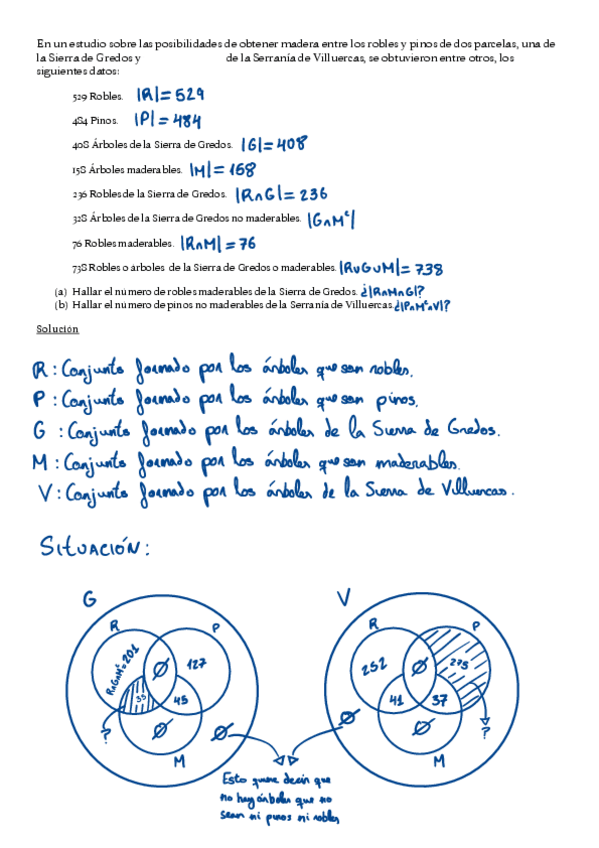 En un estudio sobre las posibilidades de obtener madera entre los robles y pinos de dos parcelas, una de
la Sierra de Gredos y de la Serranía de Villuercas, se obtuvieron entre otros, los
siguientes datos:
529 Robles. |R|= 529
484 Pinos. |P|= 484
408 Árboles de la Sierra de Gredos. |G|= 408
158 Árboles maderables. |M|= 158
236 Robles de la Sierra de Gredos. |R∩G|= 236
328 Árboles de la Sierra de Gredos no maderables. |G∩Mᶜ|
76 Robles maderables. |R∩M|= 76
738 Robles o árboles de la Sierra de Gredos o maderables. |R∪G∪M|= 738
(a) Hallar el número de robles maderables de la Sierra de Gredos. ¿|R∩M∩G|?
(b) Hallar el número de pinos no maderables de la Serranía de Villuercas. ¿|P∩Mᶜ∩V|?
Solución
R : Conjunto formado por los árboles que son robles.
P : Conjunto formado por los árboles que son pinos.
G : Conjunto formado por los árboles de la Sierra de Gredos.
M : Conjunto formado por los árboles que son maderables.
V : Conjunto formado por los árboles de la Sierra de Villuercas.
SITUACIÓN:
G
V
R
P
R
P
R∩G∩Mᶜ=201
∅
127
252
∅
275
35
45
41
37
∅
∅
∅
∅
?
?
M
M
Esto quiere decir que
no hay árboles que no
sean ni pinos ni robles